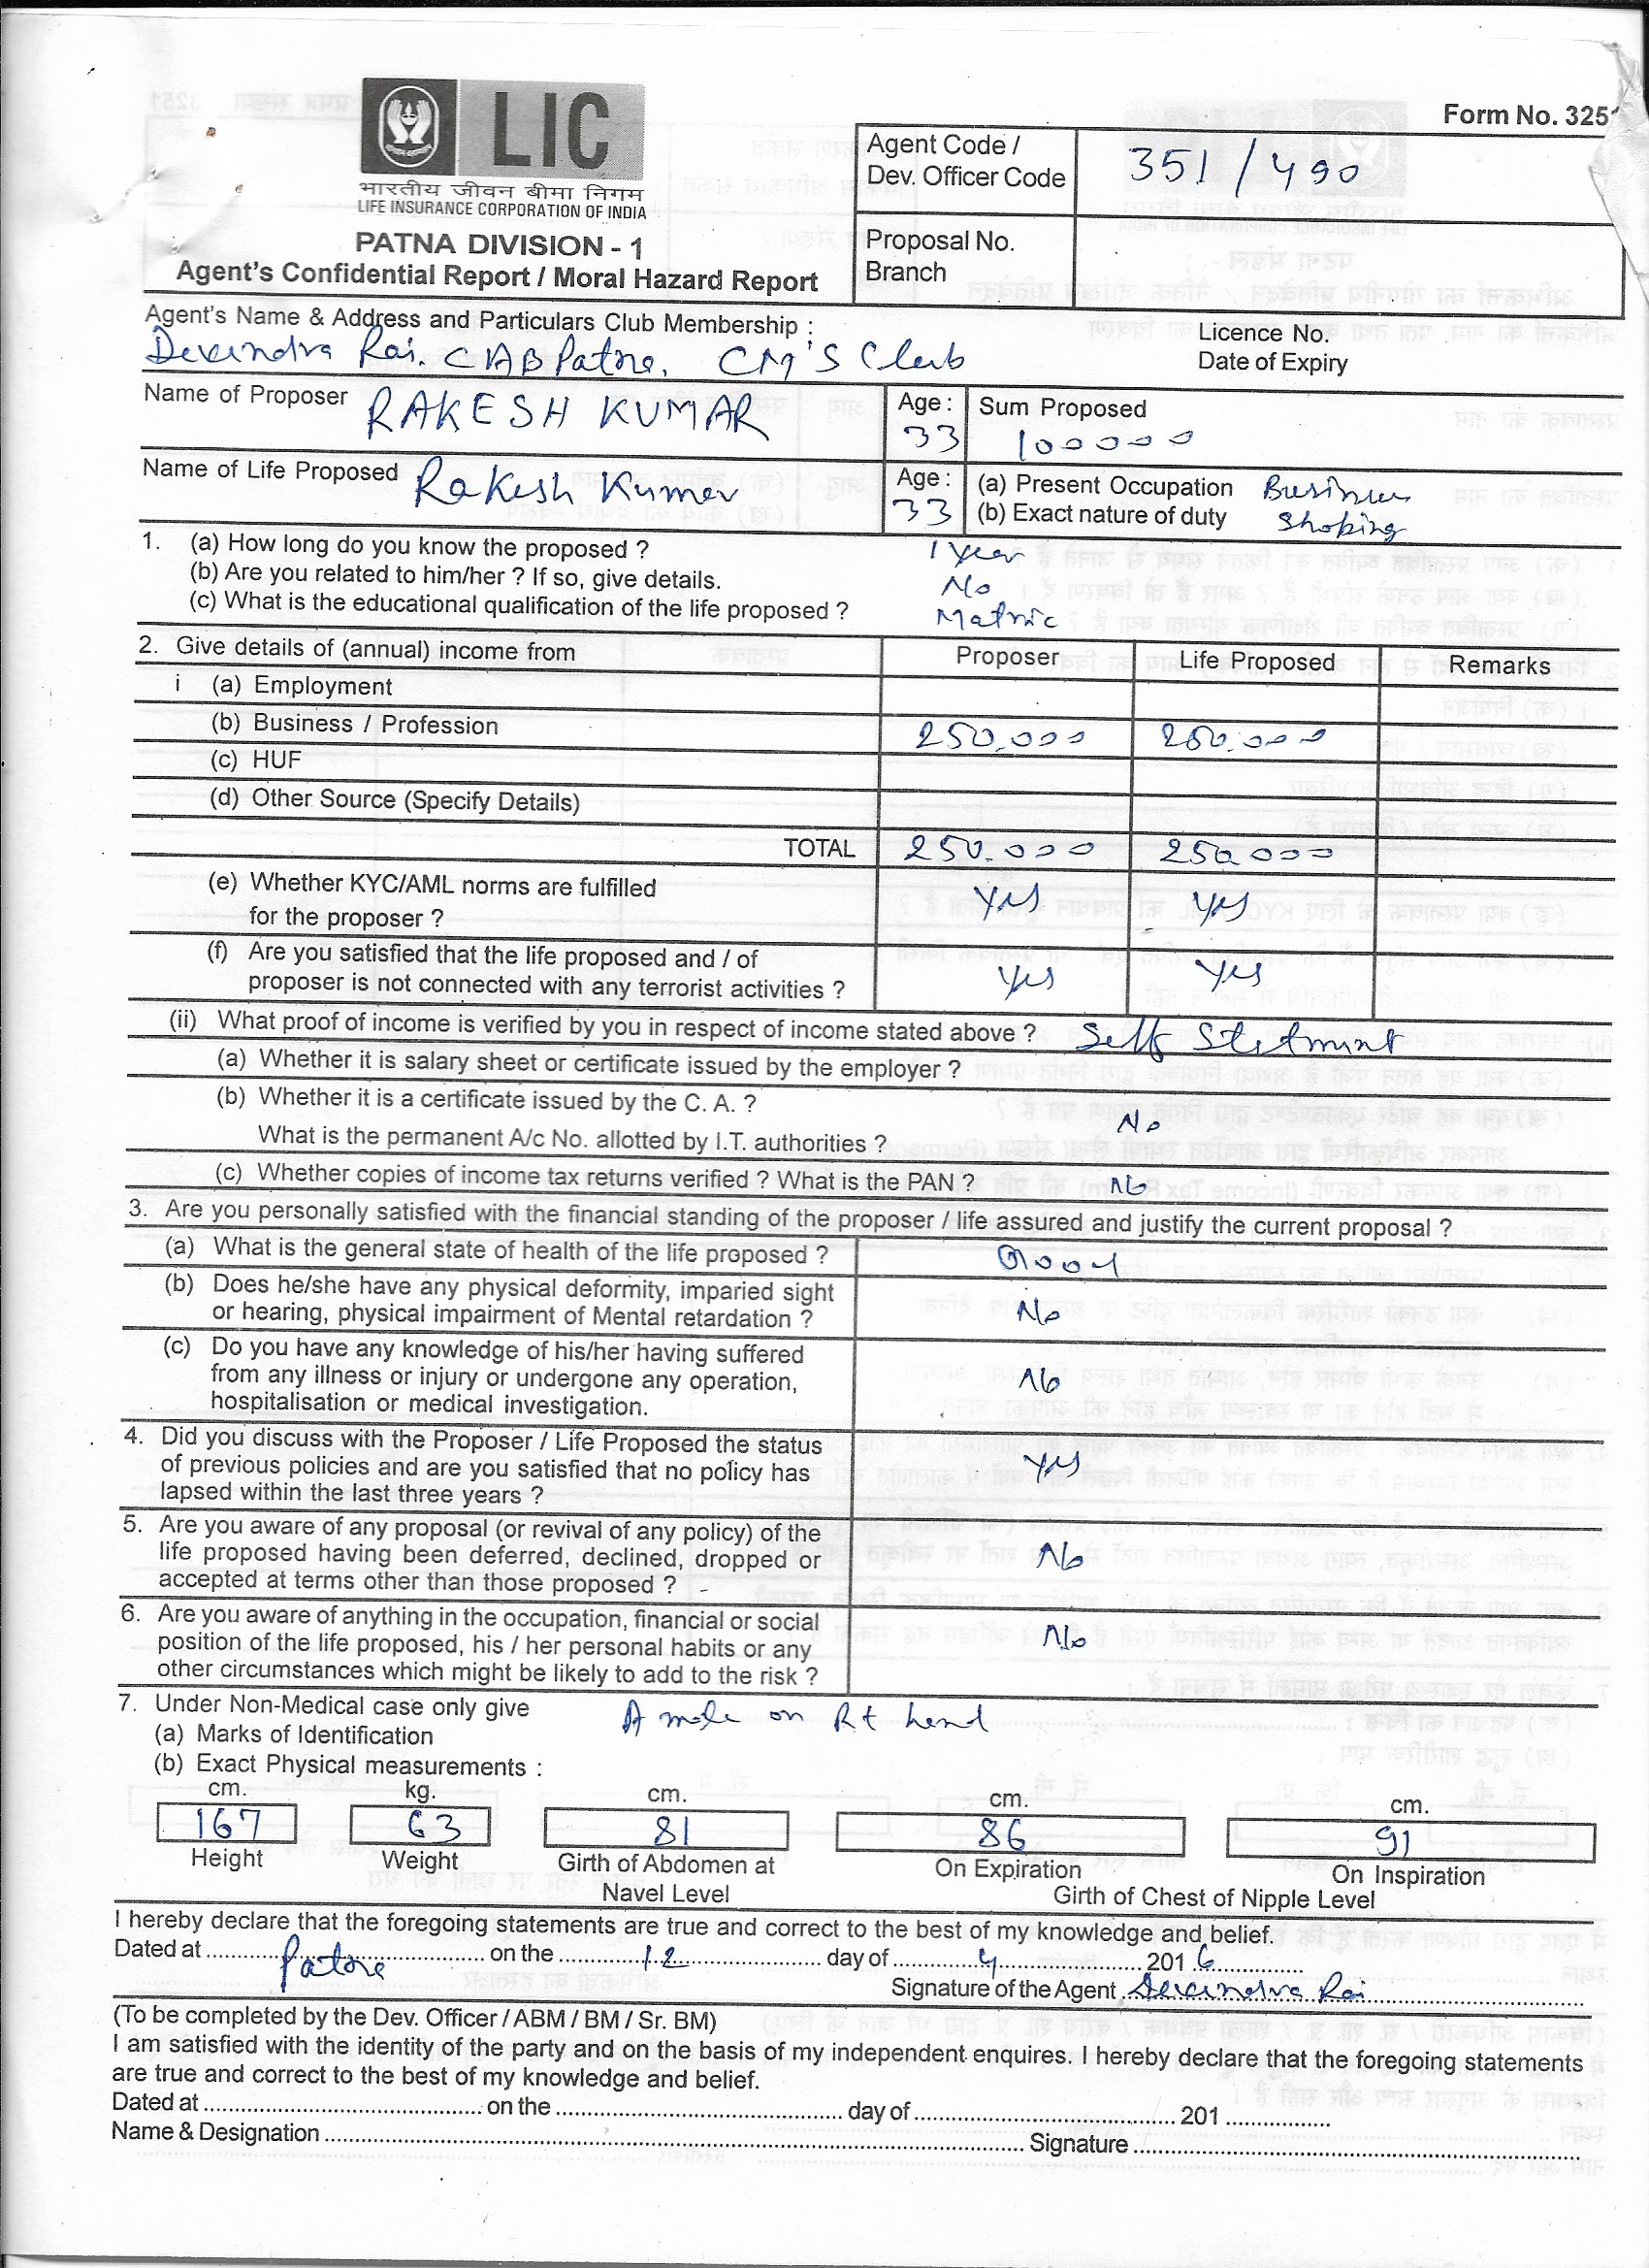 Form No. 3251
LIC
भारतीय जीवन बीमा निगम
LIFE INSURANCE CORPORATION OF INDIA
PATNA DIVISION - 1
Agent's Confidential Report / Moral Hazard Report
Agent Code /
Dev. Officer Code
351 / 490
Proposal No.
Branch
Agent's Name & Address and Particulars Club Membership :
Devendra Rai. CAB Patna, CM'S Club
Licence No.
Date of Expiry
Name of Proposer RAKESH KUMAR
Age : 33
Sum Proposed
100000
Name of Life Proposed Rakesh Kumar
Age : 33
(a) Present Occupation Business
(b) Exact nature of duty Shoping
1. (a) How long do you know the proposed ? 1 year
(b) Are you related to him/her ? If so, give details. No
(c) What is the educational qualification of the life proposed ? Matric
2. Give details of (annual) income from Proposer Life Proposed Remarks
i (a) Employment
(b) Business / Profession 250,000 250,000
(c) HUF
(d) Other Source (Specify Details)
TOTAL 250,000 250,000
(e) Whether KYC/AML norms are fulfilled
for the proposer ? Yes Yes
(f) Are you satisfied that the life proposed and / of
proposer is not connected with any terrorist activities ? Yes Yes
(ii) What proof of income is verified by you in respect of income stated above ? Self Stetment
(a) Whether it is salary sheet or certificate issued by the employer ?
(b) Whether it is a certificate issued by the C. A. ?
What is the permanent A/c No. allotted by I.T. authorities ? No
(c) Whether copies of income tax returns verified ? What is the PAN ? No
3. Are you personally satisfied with the financial standing of the proposer / life assured and justify the current proposal ?
(a) What is the general state of health of the life proposed ? Good
(b) Does he/she have any physical deformity, imparied sight
or hearing, physical impairment of Mental retardation ? No
(c) Do you have any knowledge of his/her having suffered
from any illness or injury or undergone any operation, No
hospitalisation or medical investigation.
4. Did you discuss with the Proposer / Life Proposed the status
of previous policies and are you satisfied that no policy has Yes
lapsed within the last three years ?
5. Are you aware of any proposal (or revival of any policy) of the
life proposed having been deferred, declined, dropped or No
accepted at terms other than those proposed ?
6. Are you aware of anything in the occupation, financial or social
position of the life proposed, his / her personal habits or any No
other circumstances which might be likely to add to the risk ?
7. Under Non-Medical case only give A mole on Rt hand
(a) Marks of Identification
(b) Exact Physical measurements :
cm. kg. cm. cm. cm.
167 63 81 86 91
Height Weight Girth of Abdomen at On Expiration On Inspiration
Navel Level Girth of Chest of Nipple Level
I hereby declare that the foregoing statements are true and correct to the best of my knowledge and belief.
Dated at Patna on the 12 day of 4 2016
Signature of the Agent Devendra Rai
(To be completed by the Dev. Officer / ABM / BM / Sr. BM)
I am satisfied with the identity of the party and on the basis of my independent enquires. I hereby declare that the foregoing statements
are true and correct to the best of my knowledge and belief.
Dated at on the day of 201
Name & Designation Signature